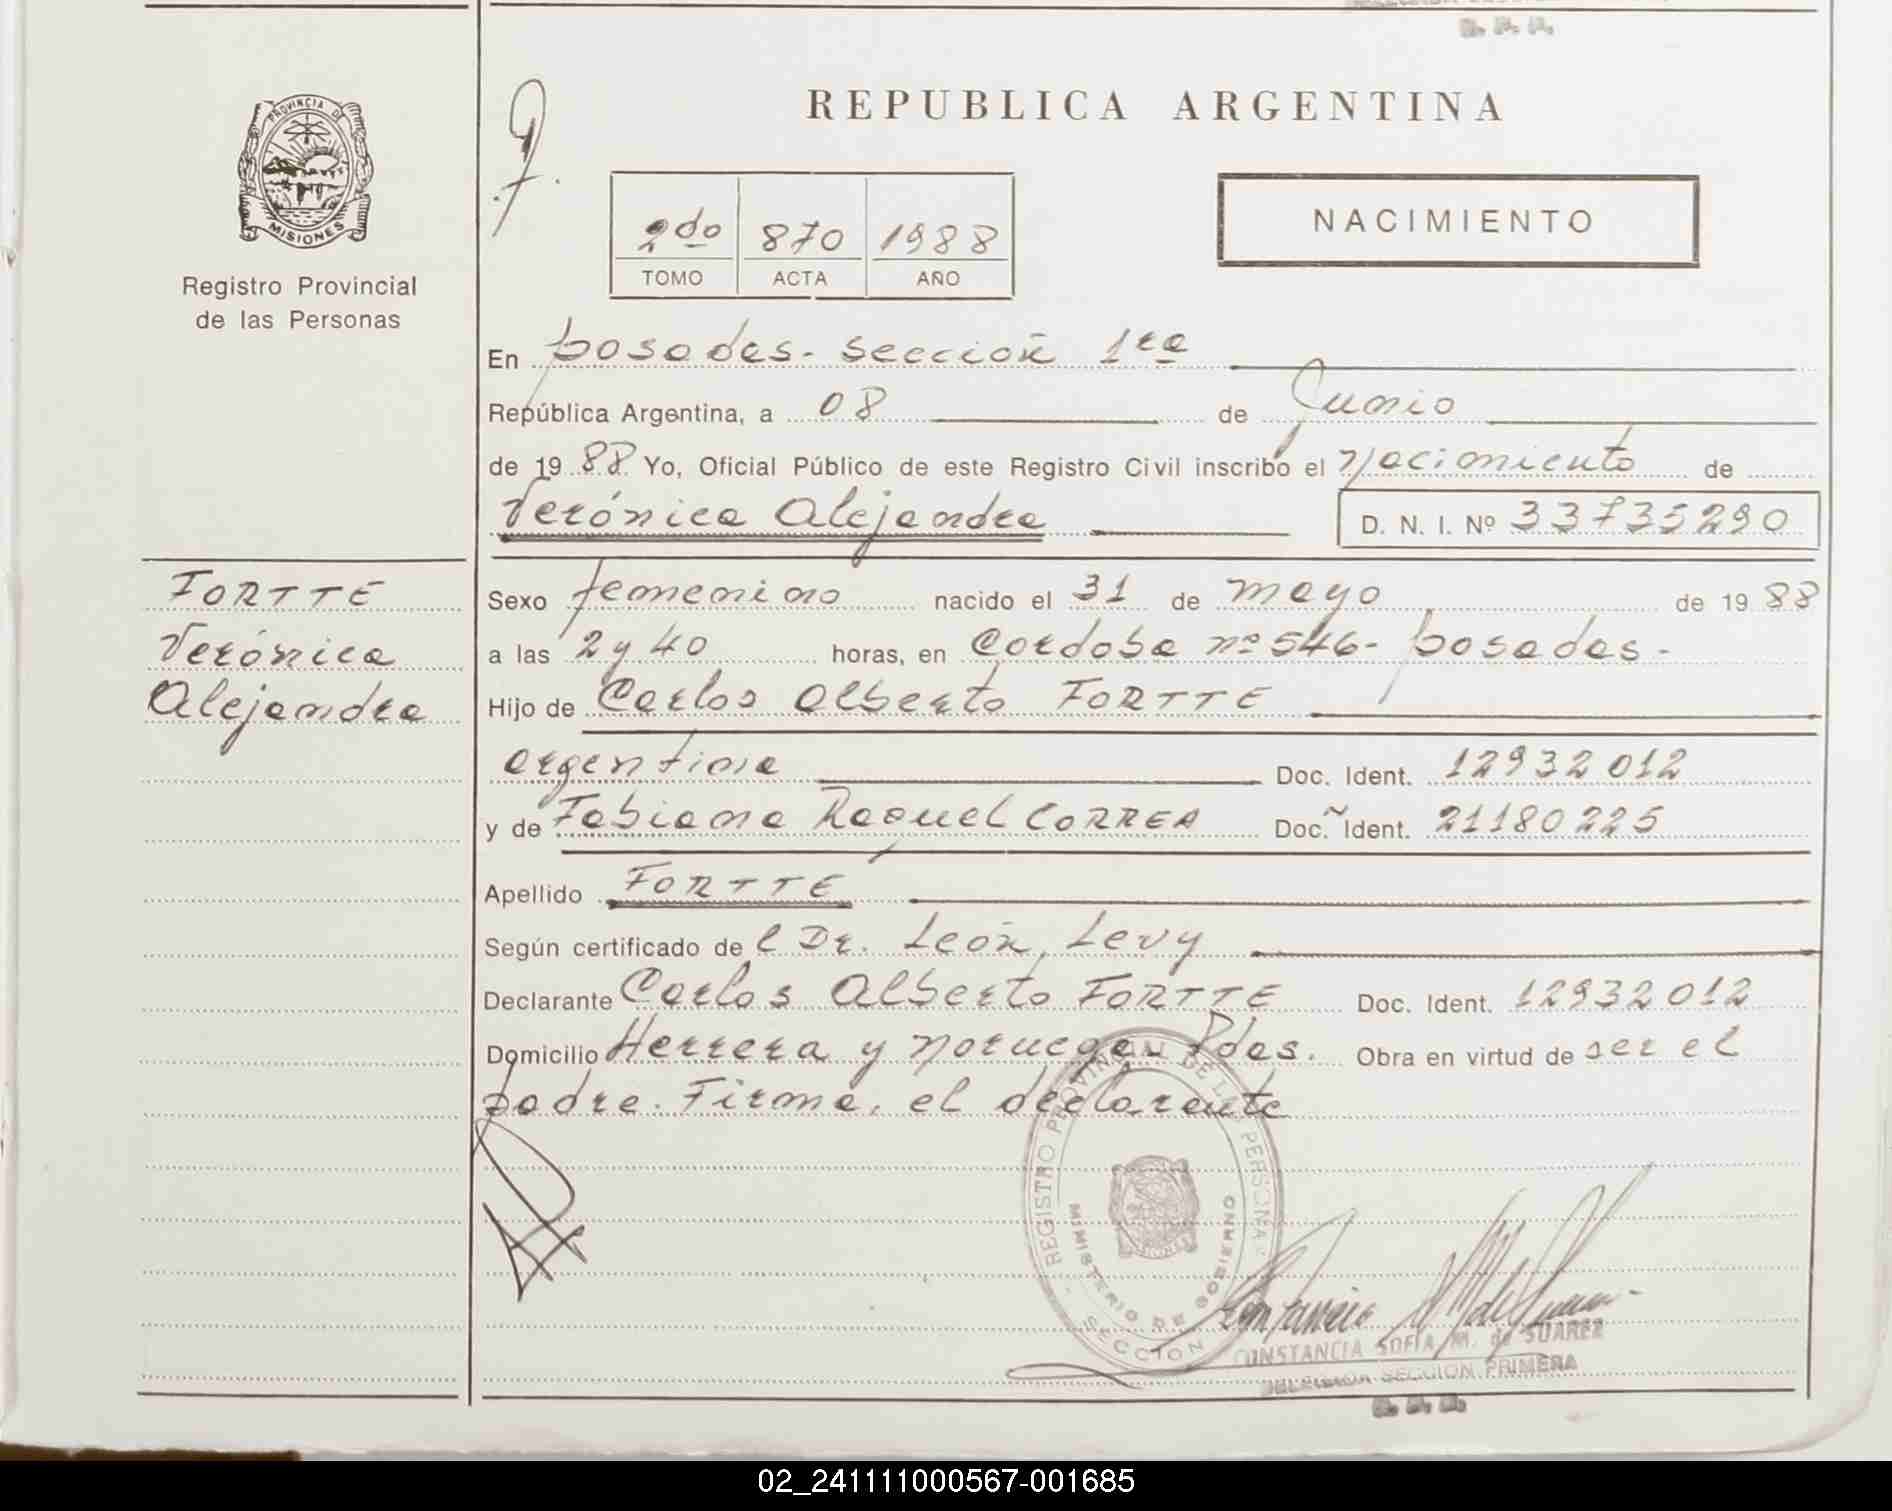 R. P. P.
PROVINCIA DE
MISIONES
Registro Provincial
de las Personas
REPUBLICA ARGENTINA
NACIMIENTO
2do 870 1988
TOMO ACTA AÑO
En posadas - sección 1ra
República Argentina, a 08 de Junio
de 1988 Yo, Oficial Público de este Registro Civil inscribo el nacimiento de
Verónica Alejandra D. N. I. Nº 33735290
FORTTE
Verónica
Alejandra
Sexo femenino nacido el 31 de mayo de 1988
a las 2 y 40 horas, en Cordoba nº 546 - posadas -
Hijo de Carlos Alberto FORTTE
argentina Doc. Ident. 12932012
y de Fabiana Raquel CORREA Doc. Ident. 21180225
Apellido FORTTE
Según certificado del Dr. León Levy
Declarante Carlos Alberto FORTTE Doc. Ident. 12932012
Domicilio Herrera y noruega - Pdas. Obra en virtud de ser el
padre. Firma, el declarante
REGISTRO PROVINCIAL DE LAS PERSONAS
MINISTERIO DE GOBIERNO
SECCION
MISIONES
CONSTANCIA SOFIA M. de SUAREZ
DELEGADA SECCION PRIMERA
R. P. P.
02_241111000567-001685